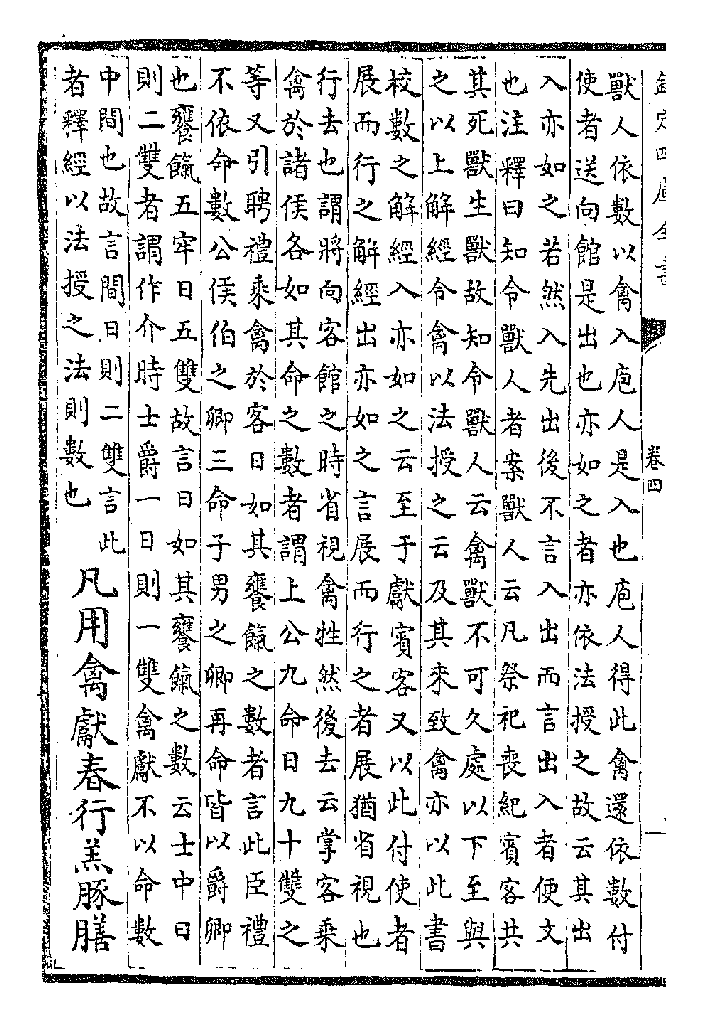 欽定四庫全書
卷四
獸人依數以禽入庖人是入也庖人得此禽還依數付
使者送向館是出也亦如之者亦依法授之故云其出
入亦如之若然入先出後不言入出而言出入者便文
也注釋曰知令獸人者案獸人云凡祭祀喪紀賓客共
其死獸生獸故知令獸人云禽獸不可久處以下至與
之以上解經令禽以法授之云及其來致禽亦以此書
校數之解經入亦如之云至于獻賓客又以此付使者
展而行之解經出亦如之言展而行之者展猶省視也
行去也謂將向客館之時省視禽牲然後去云掌客乗
禽於諸侯各如其命之數者謂上公九命日九十雙之
等又引聘禮乗禽於客日如其饔餼之數者言此臣禮
不依命數公侯伯之卿三命子男之卿再命皆以爵卿
也饔餼五牢日五雙故言日如其饔餼之數云士中日
則二雙者謂作介時士爵一日則一雙禽獻不以命數
中間也故言間日則二雙言此
者釋經以法授之法則數也
凡用禽獻春行羔豚膳